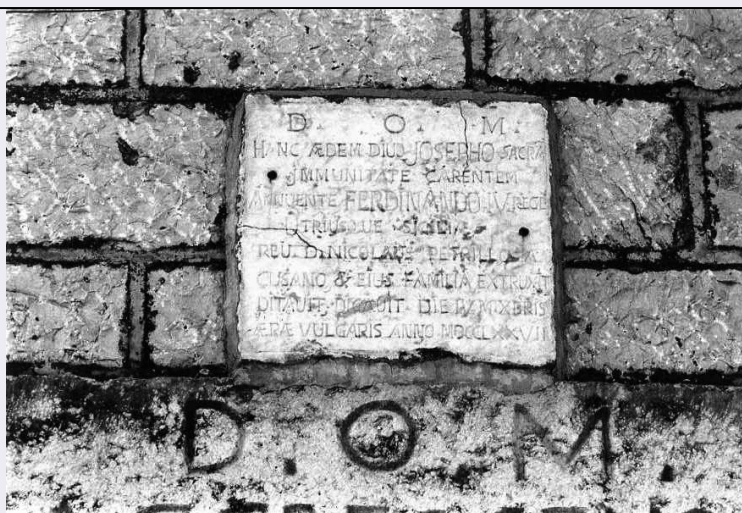 D. O. M.
HANC ÆDEM DIUO JOSEPHO SACRĀ
JMMUNITATE CARENTEM
ANNUENTE FERDINANDO IV REGE
UTRIUSQUE SICILIÆ
D. NICOLAUS PETRILLO A
CUSANO & EIUS FAMILIA EXTRUXIT
DITAUIT DICAUIT DIE IV MIXBRIS
ÆRÆ VULGARIS ANNO MDCCLXXVII
D. O. M.